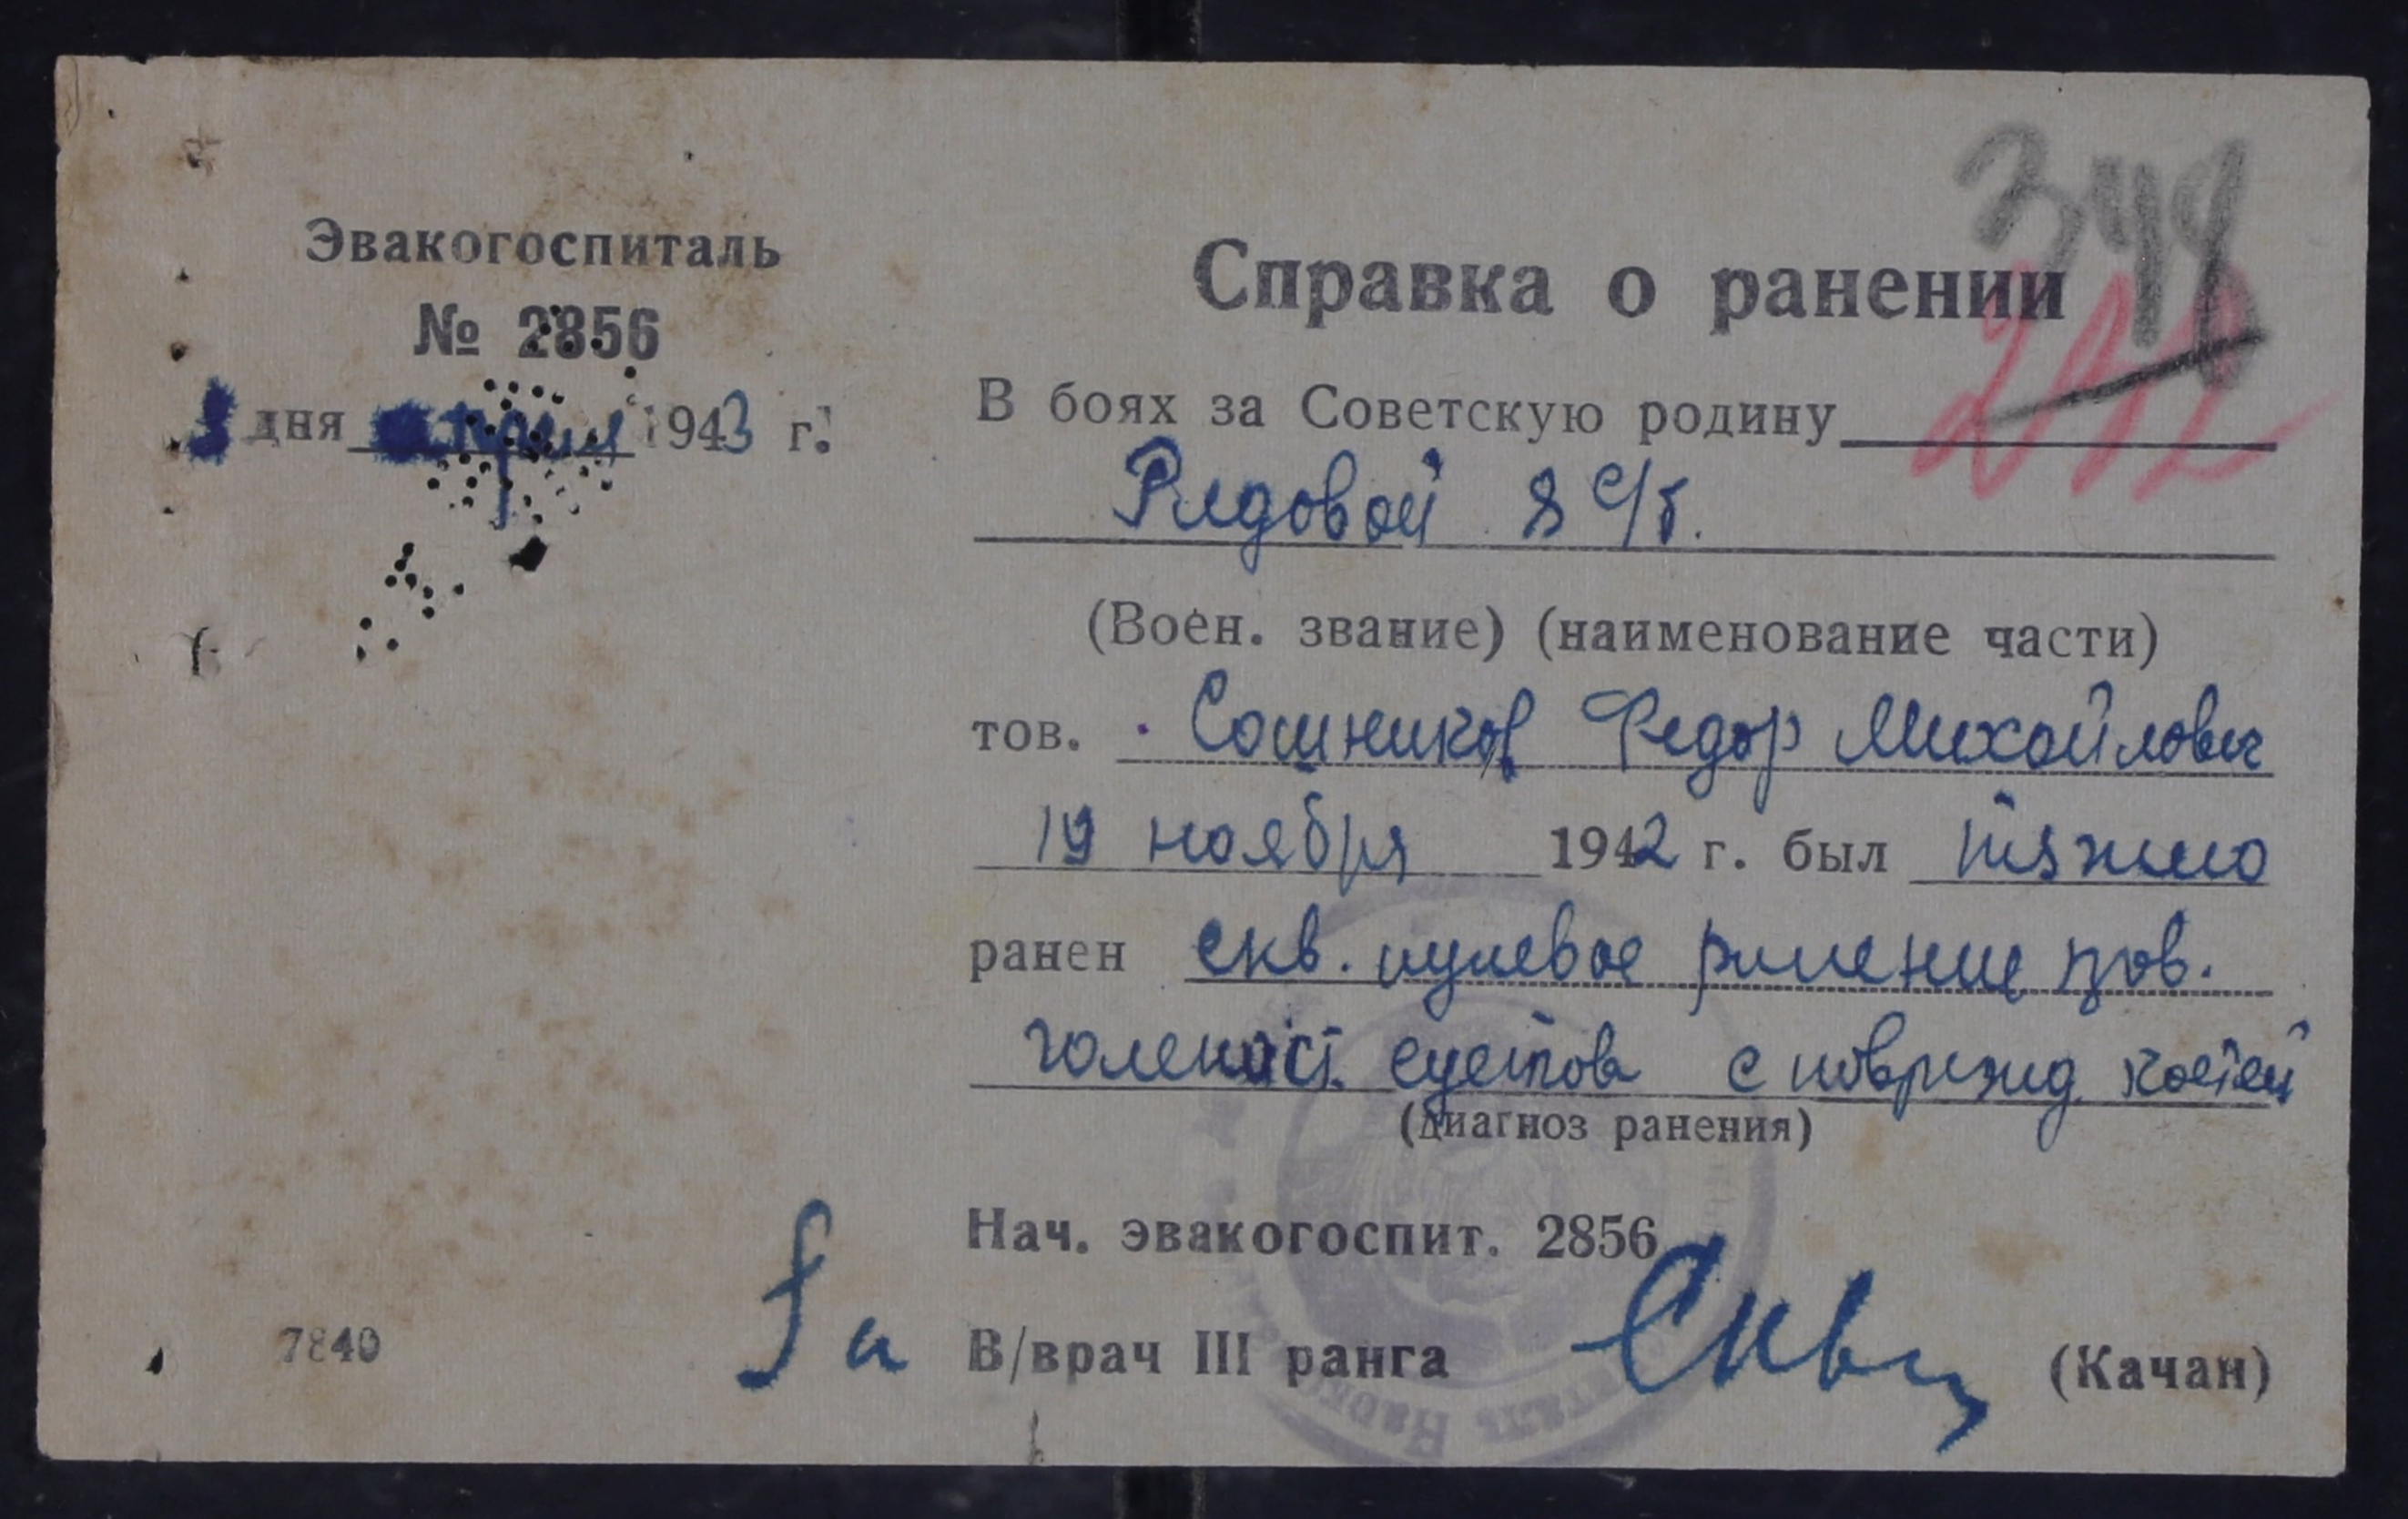 348
212
Эвакогоспиталь
№ 2856
3 дня апреля 1943 г.
Справка о ранении
В боях за Советскую родину
Рядовой 8 с/б.
(Воен. звание) (наименование части)
тов. Сошников Федор Михайлович
19 ноября 1942 г. был тяжело
ранен скв. пулевое ранение прав.
голеност. сустава с поврежд. костей
(диагноз ранения)
Нач. эвакогоспит. 2856
За В/врач III ранга (Качан)
7840